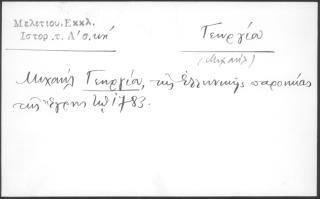 Μελετίου.Εκκλ.
Ιστορ.τ.Α'σ.
Γεωργία
(Μιχαήλ)
Μιχαήλ Γεωργία, τῆς ἑλληνικῆς παροικίας
τῆς Ἔγρης 1783.